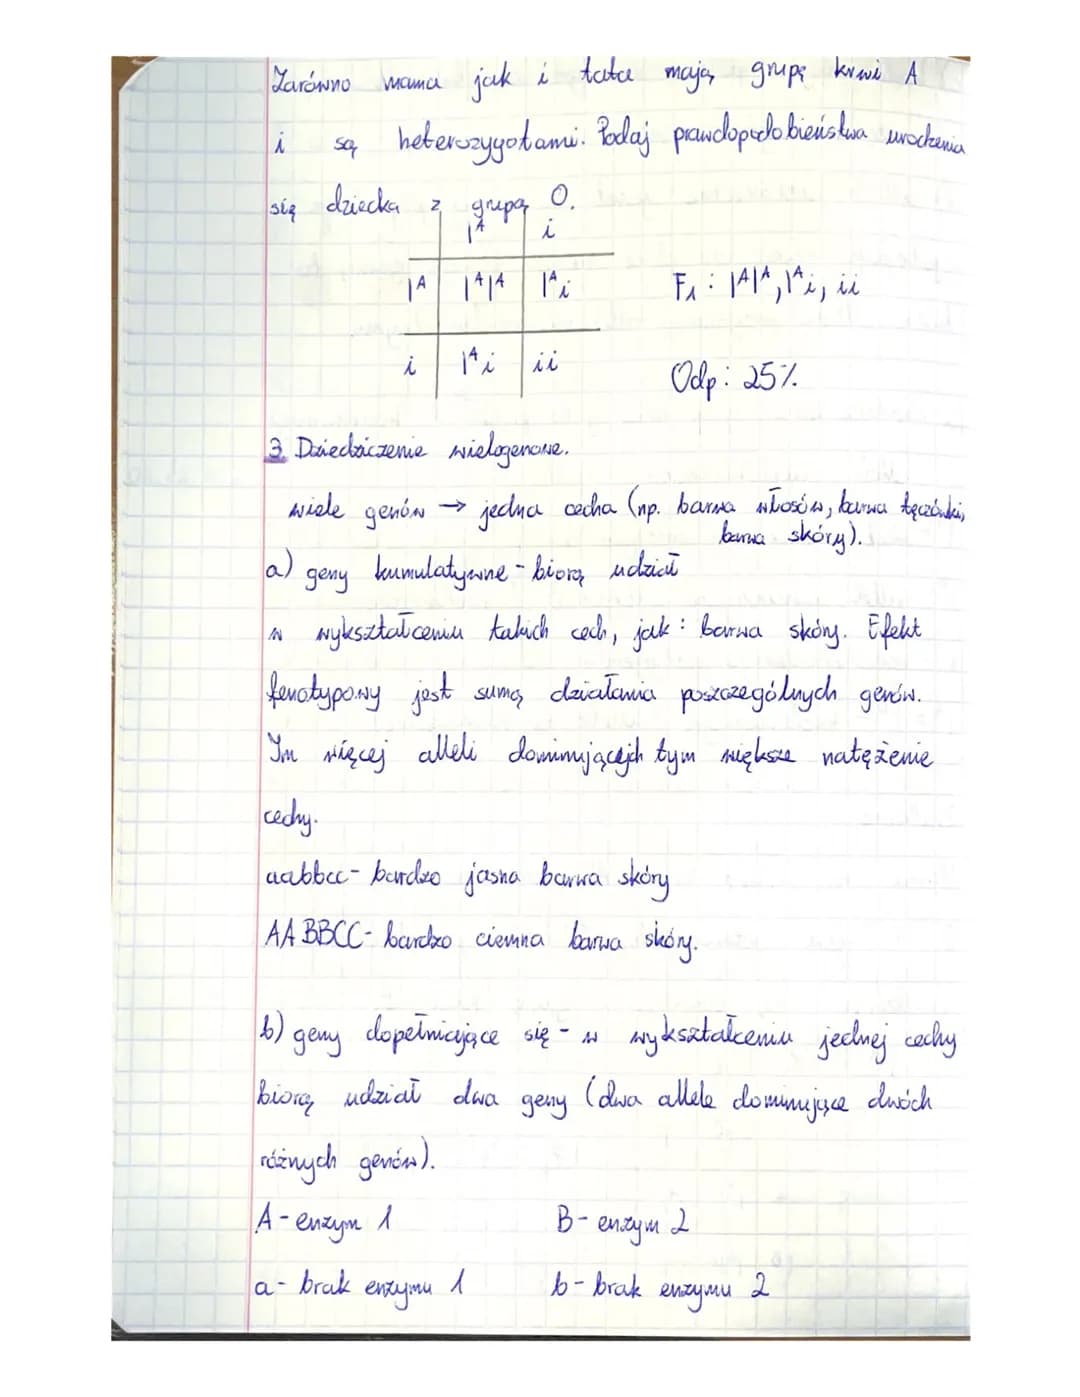 Zarówno mama jak i tata mają grupę krwi A
i są heterozygotami. Podaj prawdopodobieństwa urodzenia
się dziecka z grupą O.
I^A i
I^A I^A I^A I^A i F₁: I^A I^A, I^A i, ii
i I^A i ii
Odp: 25%
3. Dziedziczenie wielogenowe.
wiele genów → jedna cecha (np. barwa włosów, barwa tęczówki,
barwa skóry).
a) geny kumulatywne - biorą udział
w wykształceniu takich cech, jak: barwa skóry. Efekt
fenotypowy jest sumą działania poszczególnych genów.
Im więcej alleli dominujących tym większe natężenie
cechy.
aabbcc - bardzo jasna barwa skóry
AABBCC - bardzo ciemna barwa skóry.
b) geny dopełniające się - w wykształceniu jednej cechy
biorą udział dwa geny (dwa allele dominujące dwóch
różnych genów).
A - enzym 1 B - enzym 2
a - brak enzymu 1 b - brak enzymu 2